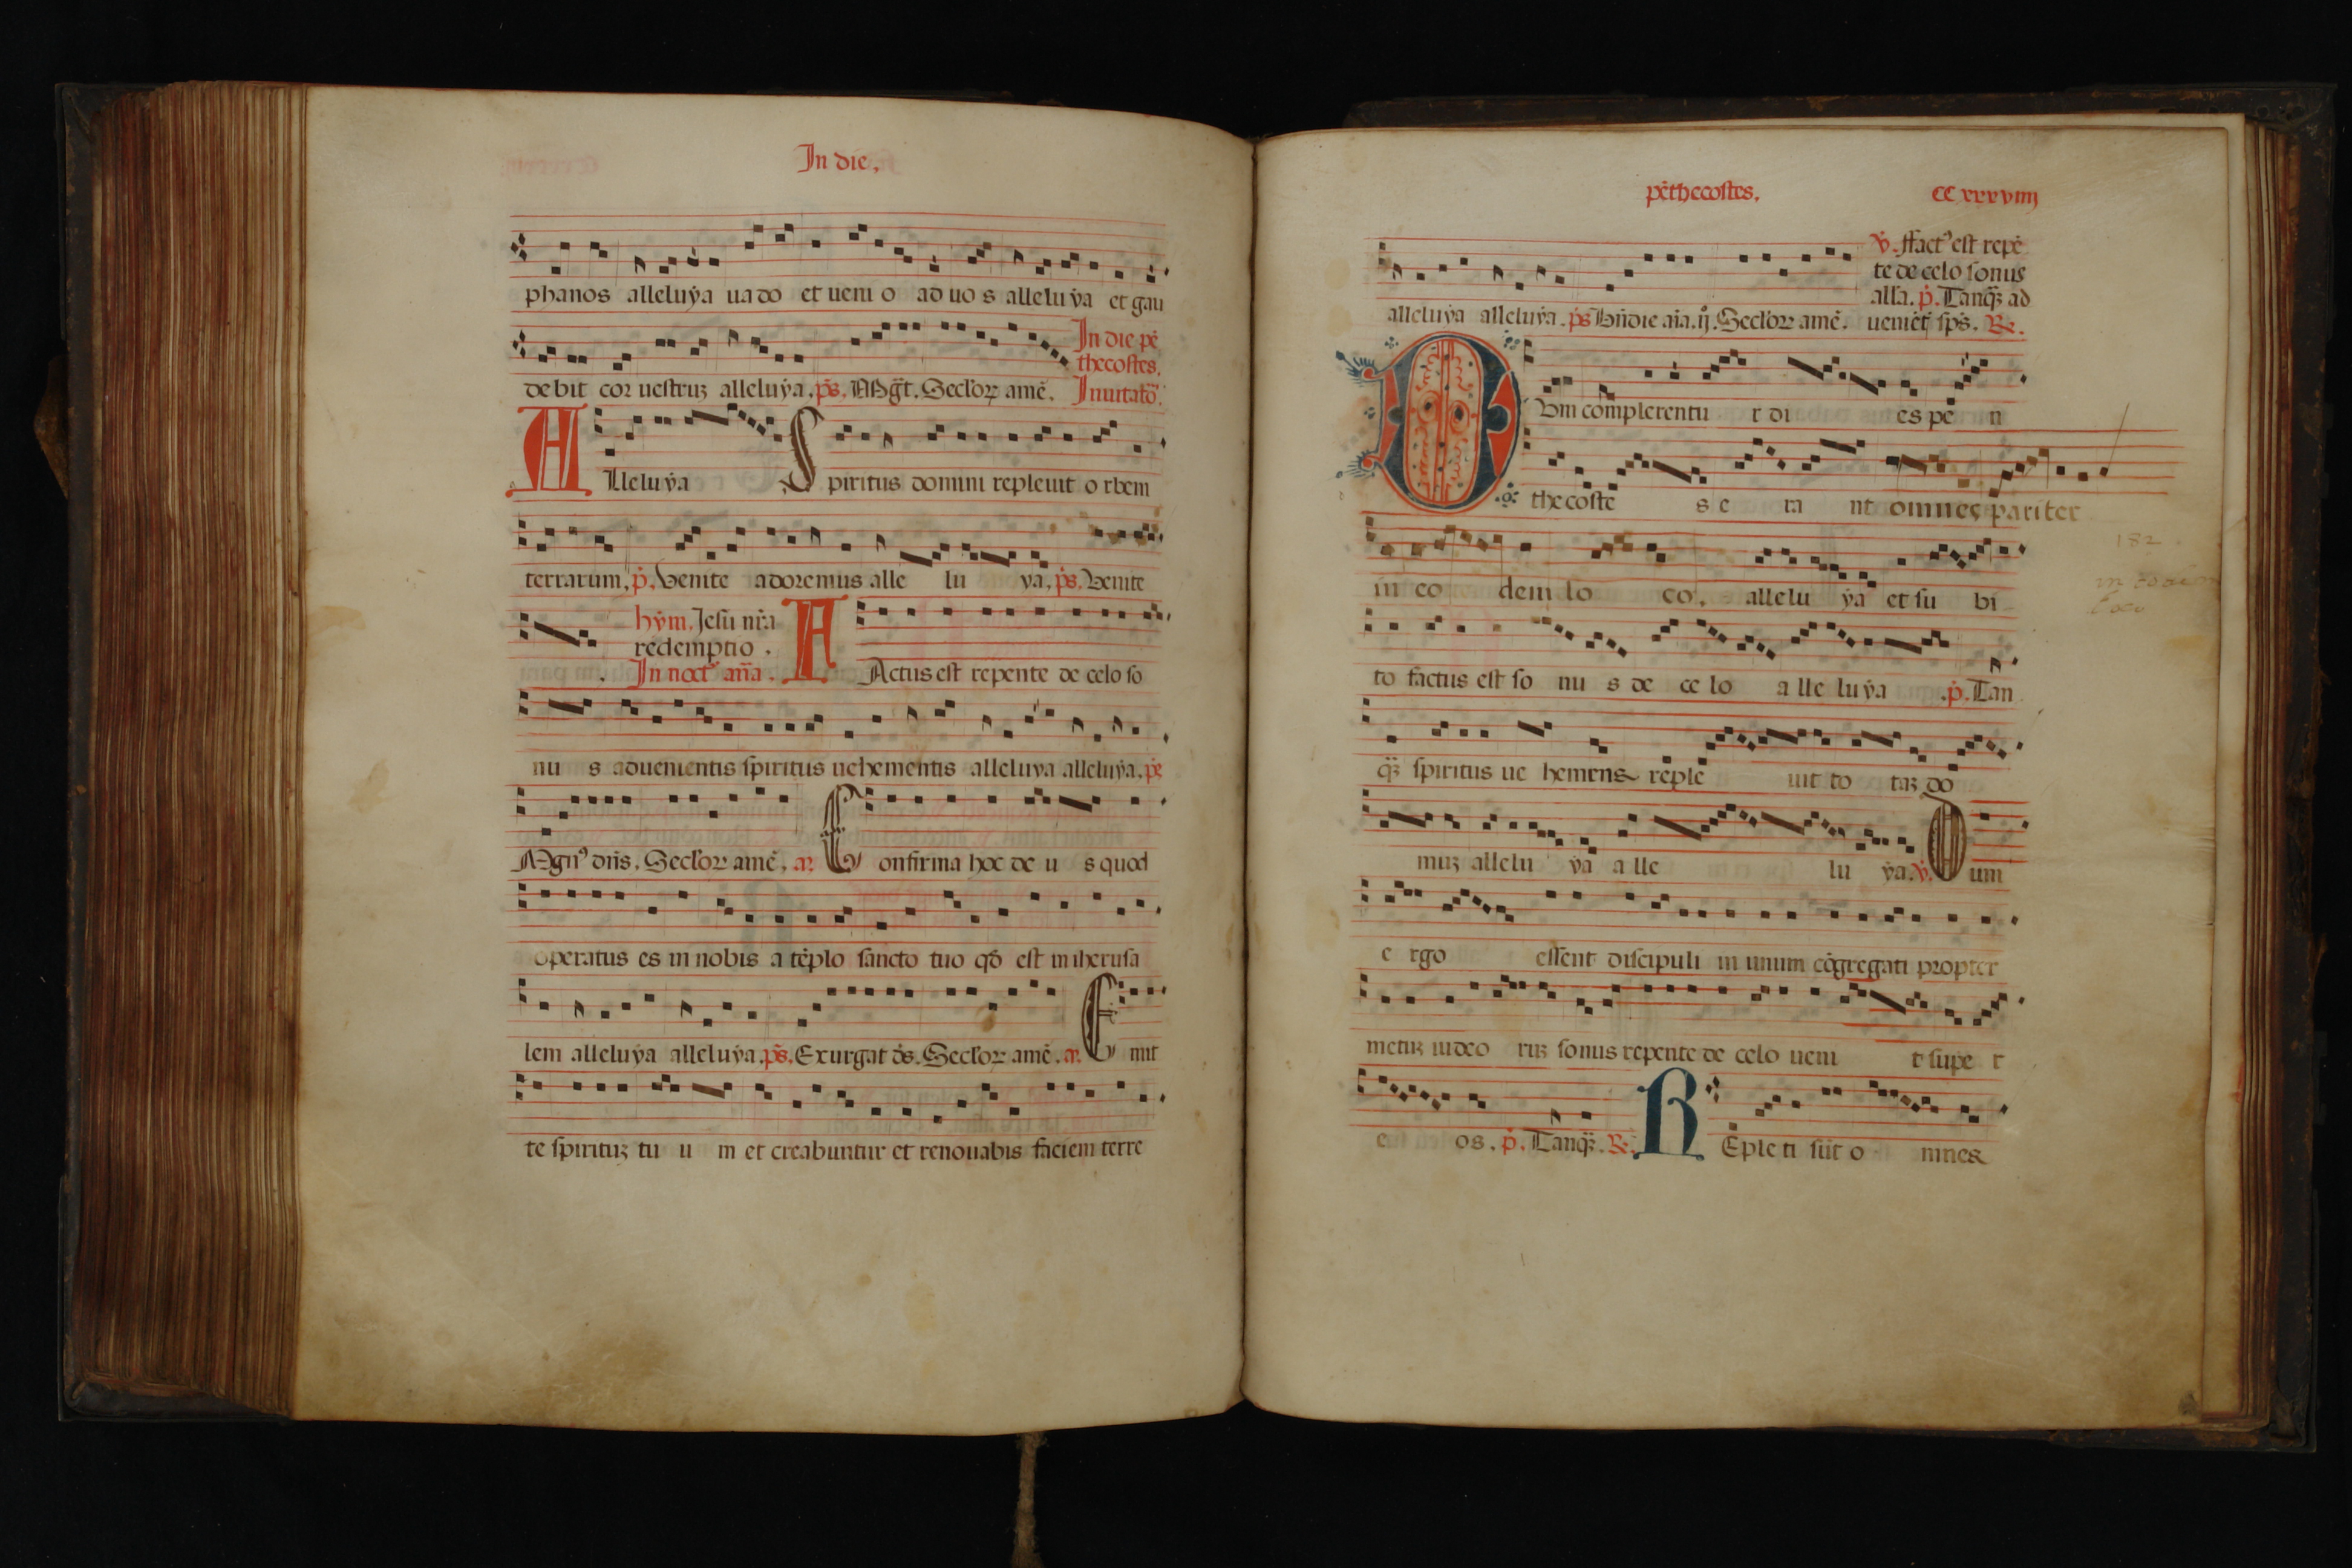 In die.
phanos alleluya uado et ueni o ad uo s alleluya et gau
debit cor uestruȝ alleluya. ps. Mḡt. Seclorꝝ amē.
In die pē
thecostes.
Inuitatō.
Alleluya Spiritus domini repleuit o rbem
terrarum. p̄. Venite adoremus alle lu ya. ps. Venite
hym. Jesu nr̄a
redemptio.
In noct᷒ an̄a.
FActus est repente de celo so
nu s aduenientis spiritus uehementis alleluya alleluya. ps
Magn᷒ dn̄s. Seclorꝝ amē. an̄. Confirma hoc de u s quod
operatus es in nobis a tēplo sancto tuo qđ est in iherusa
lem alleluya alleluya. ps. Exurgat ds. Seclorꝝ amē. an̄. Emit
te spirituȝ tu u m et creabuntur et renouabis faciem terre
pēthecostes. CCxxxviiij
alleluya alleluya. ps Bn̄dic aīa. ij. Seclorꝝ amē.
V̄. ffact᷒ est repē
te de celo sonus
alla. p̄. Tanqȝ ad
ueniēt sps̄. ℞.
DVm complerentu r di es pe n
thecoste s e ra nt omnes pariter
in eo dem lo co. allelu ya et su bi
182
in eodem
loco
to factus est so nu s de ce lo a lle luya .p̄. Tan
qȝ spiritus ue hemens reple uit to taȝ do
muȝ allelu ya a lle lu ya. V̄. Dum
e rgo essent discipuli in unum cōgregati propter
metuȝ iudeo ruȝ sonus repente de celo ueni t supe r
e os. p̄. Tanqȝ. ℞. REple ti sūt o mnes